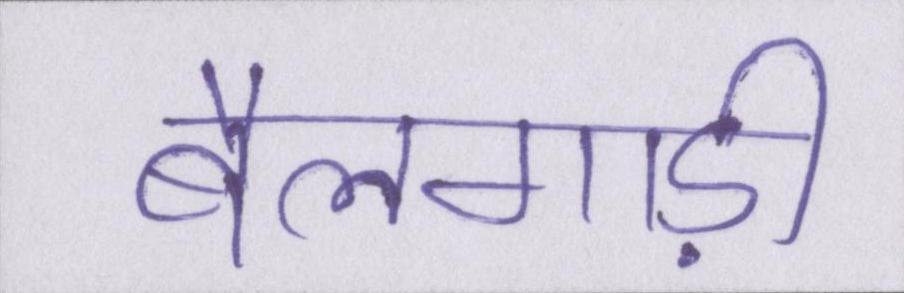 बैलगाड़ी